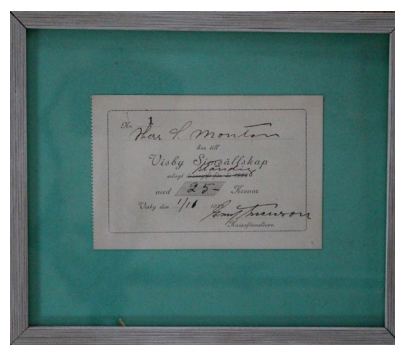 No 1
Herr S. Monton
har till
Visby Simsällskap
erlagt
med 25- Kronor
Visby den 1/11
Kassaförvaltare